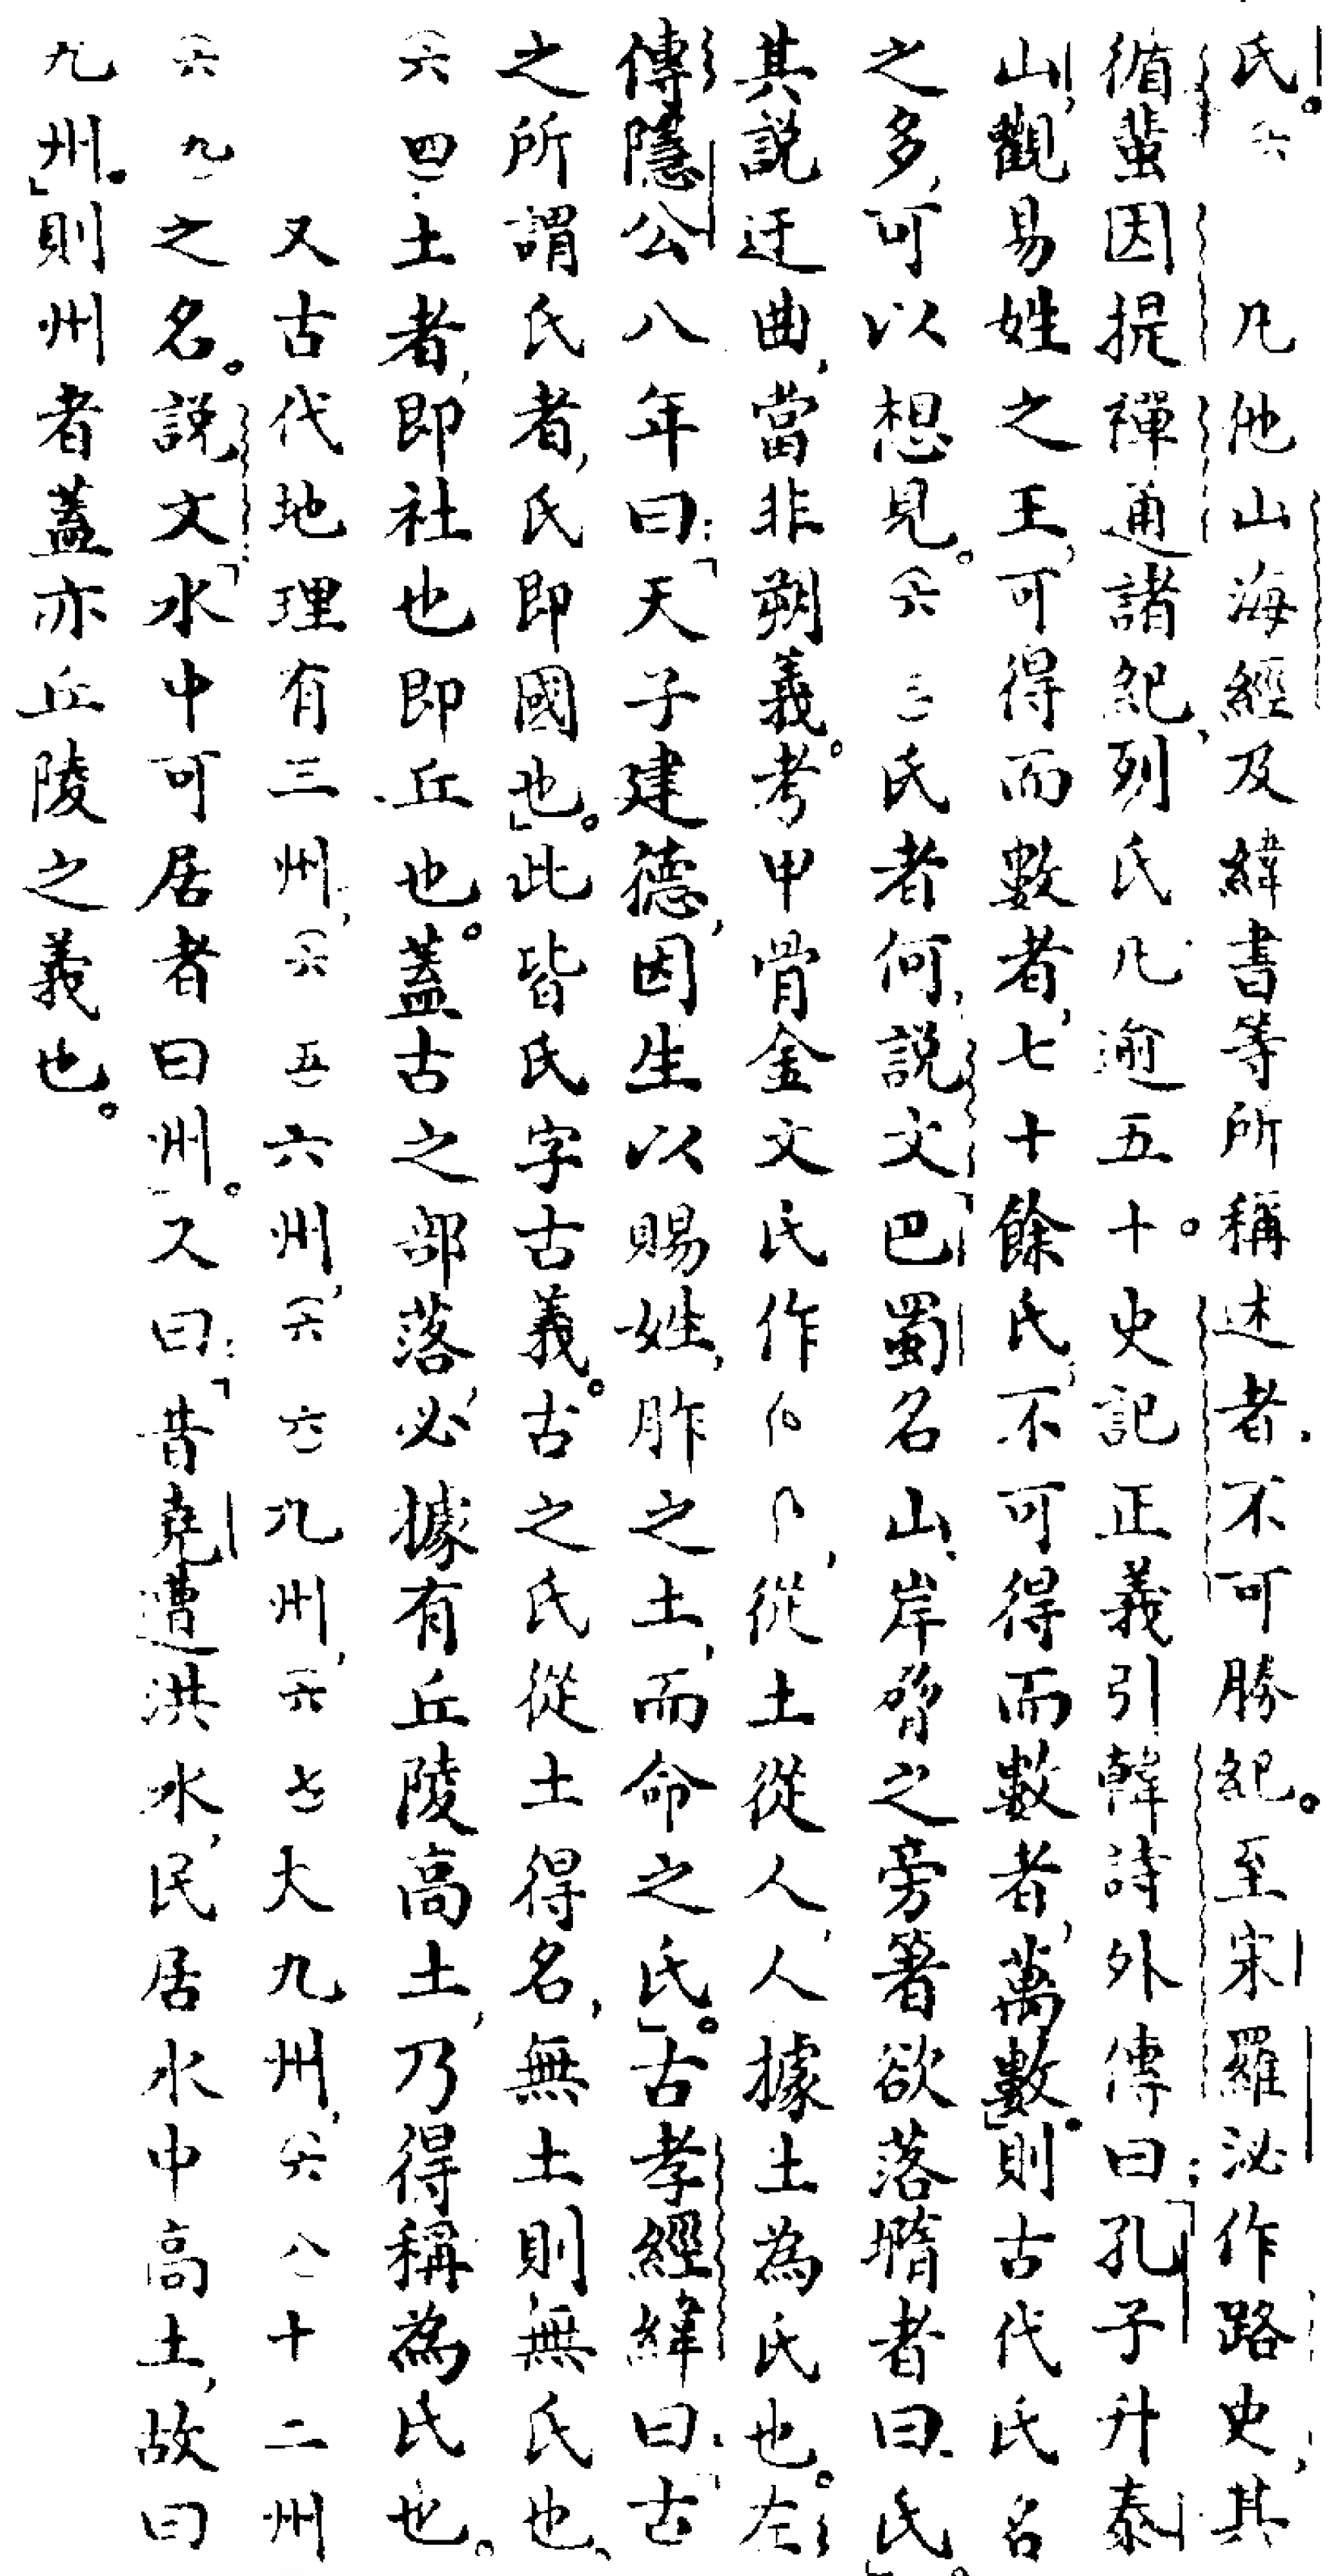 氏。六凡他山海經及緯書等所稱述者，不可勝紀。至宋羅泌作路史，其
循蜚因提禪通諸紀，列氏凡逾五十。史記正義引韓詩外傳曰：「孔子升泰
山，觀易姓之王，可得而數者，七十餘氏，不可得而數者，萬數」。則古代氏名
之多，可以想見。（六三）氏者何，說文「巴蜀名山岸脅之旁箸欲落墮者曰氏」。
其說迂曲，當非朔義。考甲骨金文氏作，從土從人，人據土為氏也。左
傳隱公八年曰：「天子建德，因生以賜姓，胙之土，而命之氏」。古孝經緯曰：「古
之所謂氏者，氏即國也」。此皆氏字古義。古之氏從土得名，無土則無氏也、
（六四）土者，即社也即丘也。蓋古之部落，必據有丘陵高土，乃得稱為氏也。
又古代地理有三州，（六五）六州，（六六）九州，（六七）大九州，（六八）十二州
（六九）之名。說文：「水中可居者曰州」。又曰：「昔堯遭洪水，民居水中高土，故曰
九州。」則州者蓋亦丘陵之義也。